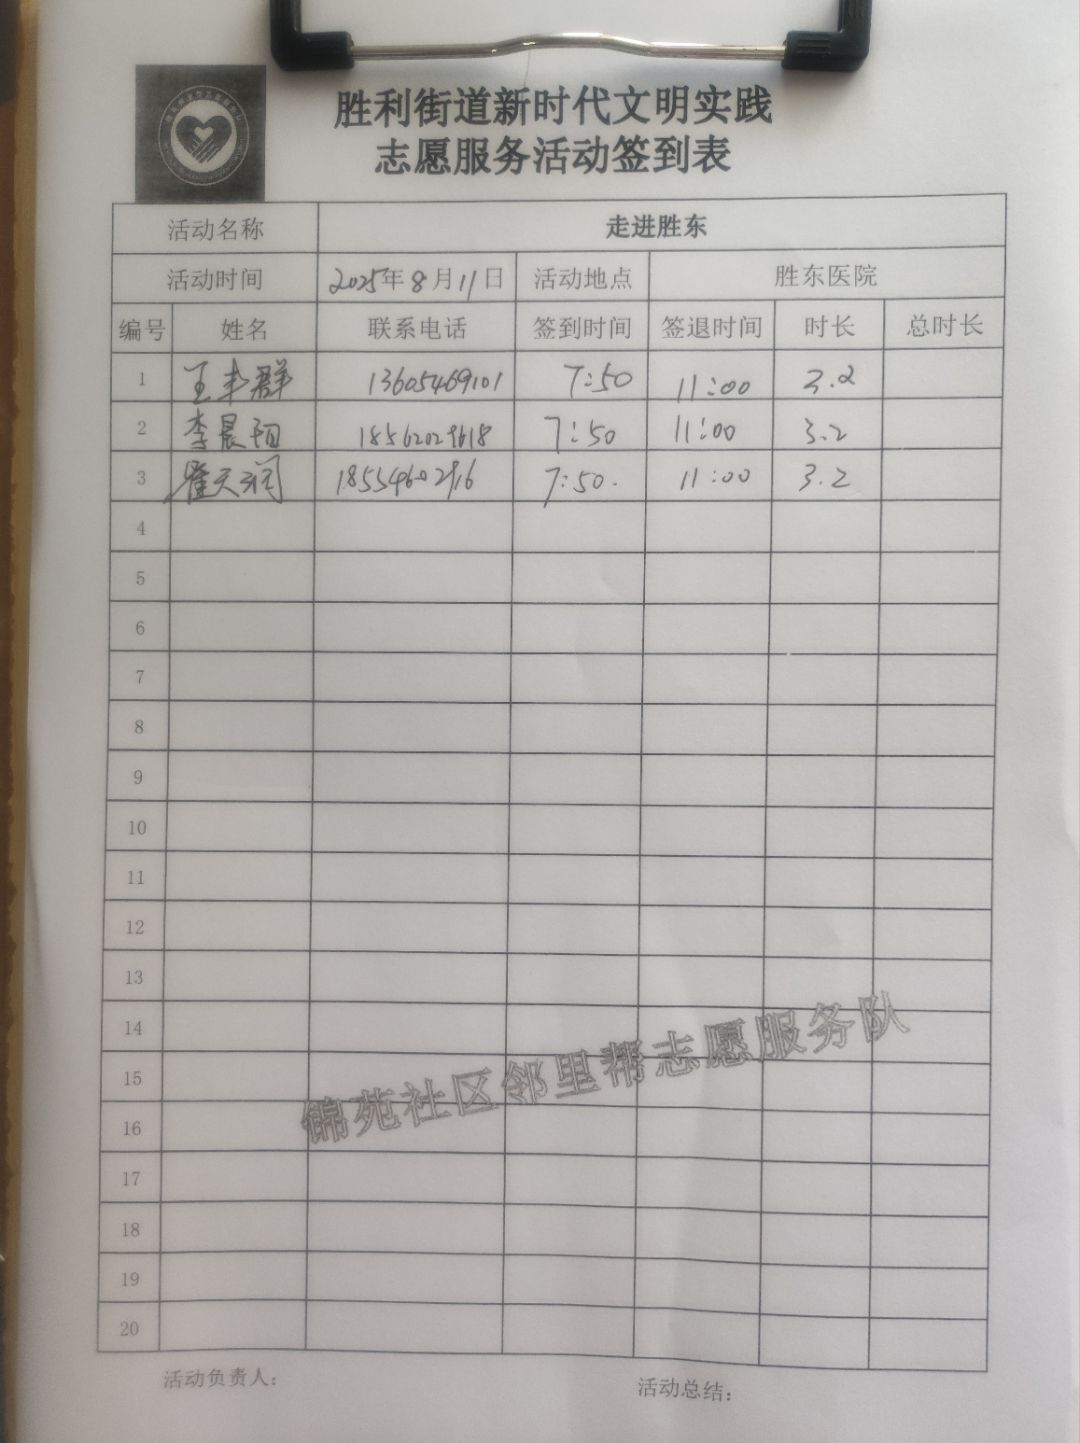 胜利街道新时代文明实践
志愿服务活动签到表
活动名称 走进胜东
活动时间 2025年8月11日 活动地点 胜东医院
编号 姓名 联系电话 签到时间 签退时间 时长 总时长
1 王丰群 13605469101 7:50 11:00 3.2
2 李晨阳 7:50 11:00 3.2
3 翟天润 7:50. 11:00 3.2
4
5
6
7
8
9
10
11
12
13
14
15
16
17
18
19
20
锦苑社区邻里帮志愿服务队
活动负责人： 活动总结：